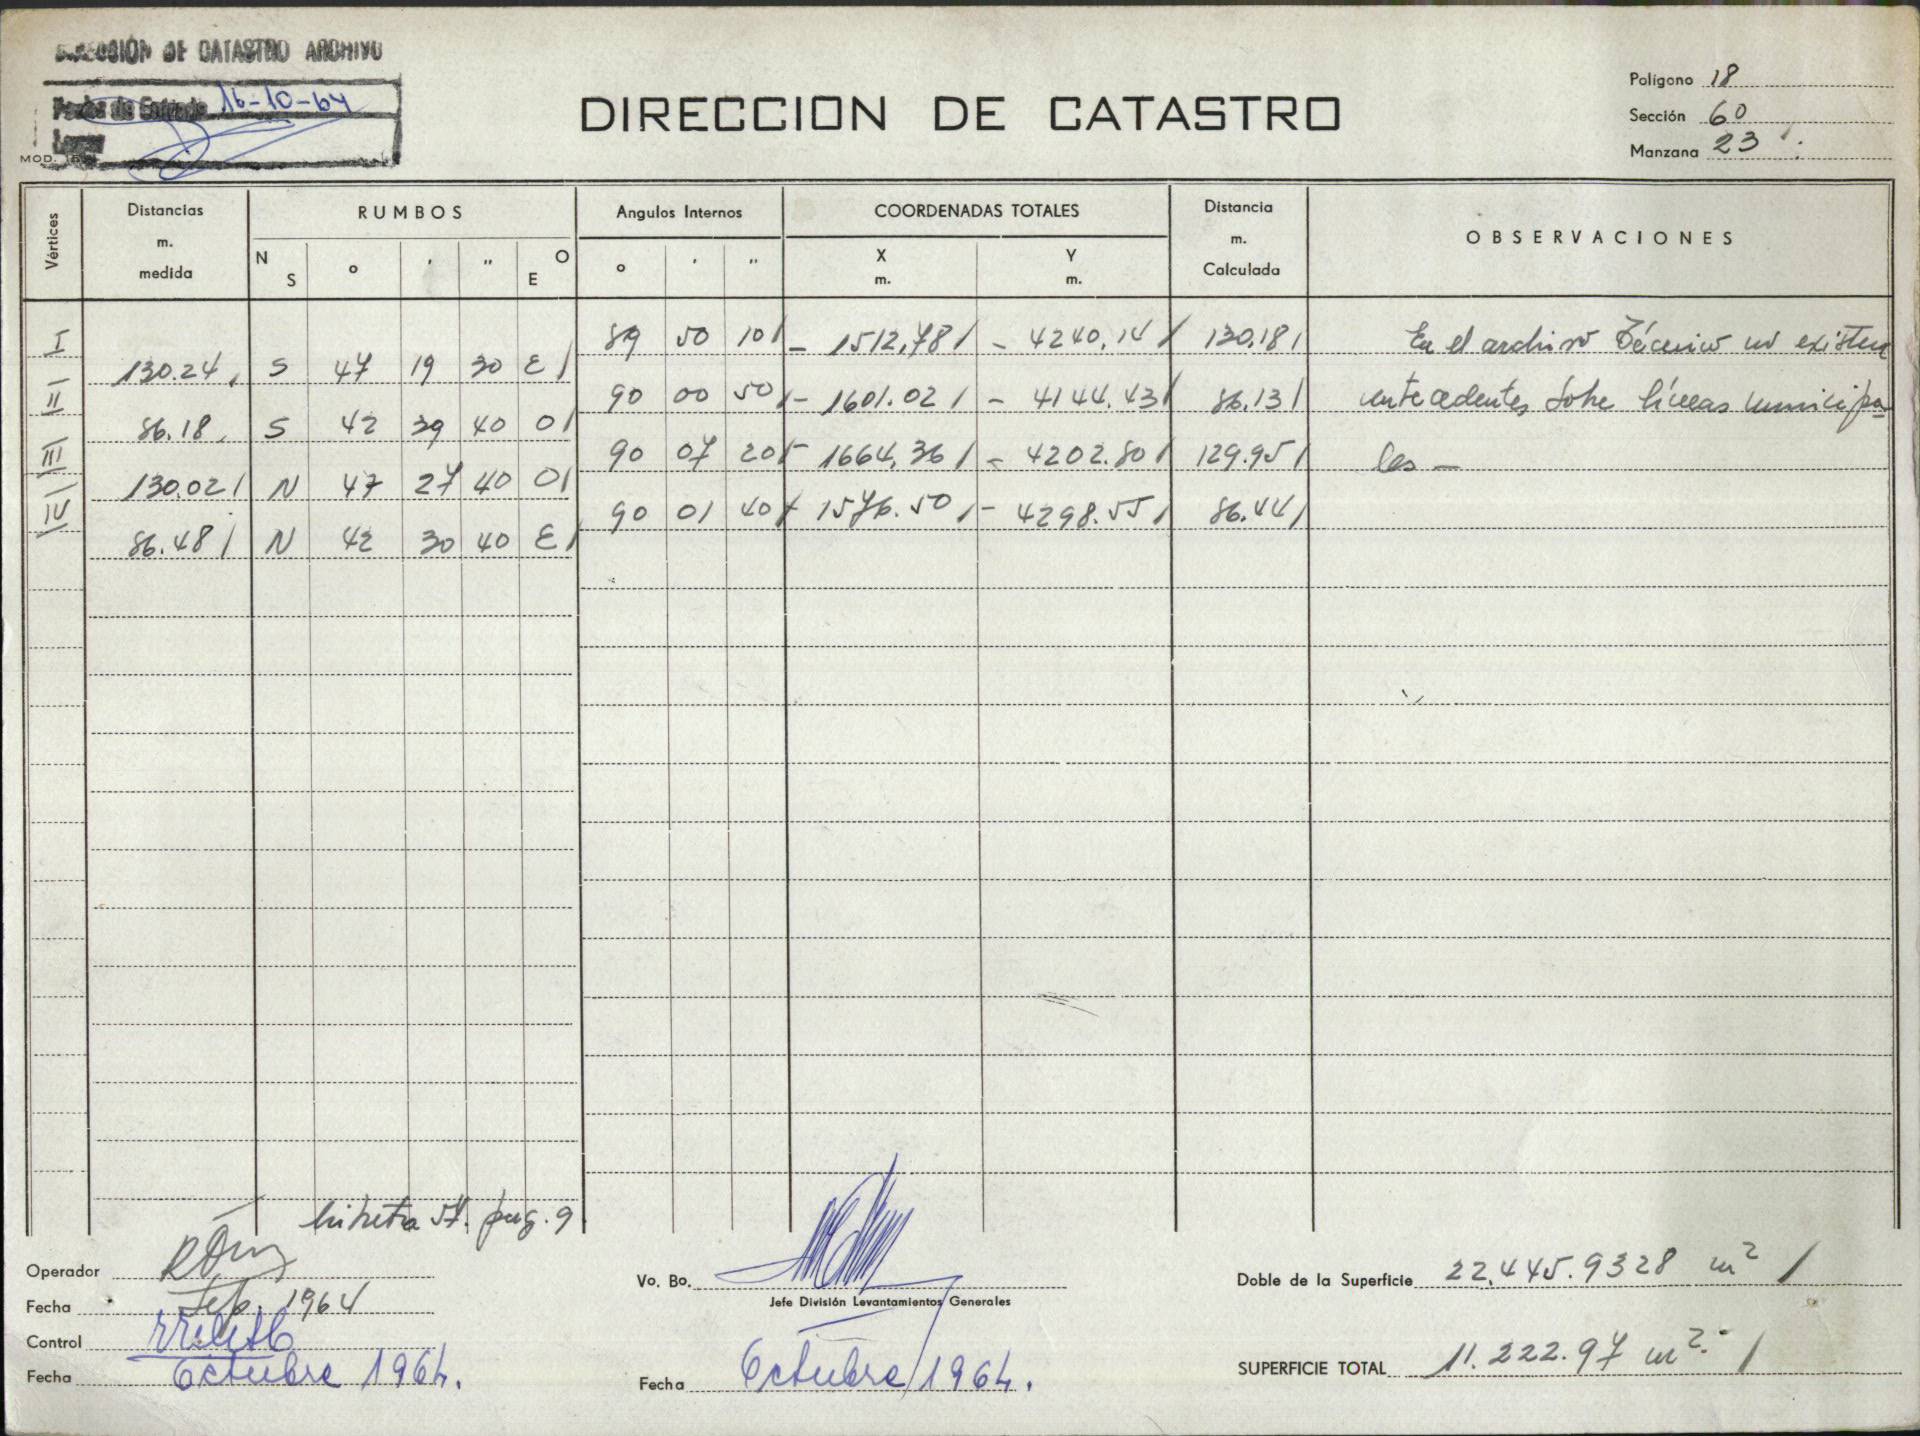 DIRECCIÓN DE CATASTRO ARCHIVO
Fecha de Entrada 16-10-64
MOD.
DIRECCION DE CATASTRO
Polígono 18
Sección 60
Manzana 23
Vértices
Distancias m. medida
RUMBOS
N S ° ' " O E
Angulos Internos
° ' "
COORDENADAS TOTALES
X m. Y m.
Distancia m. Calculada
OBSERVACIONES
I 89 50 10 - 1512,78 - 4240,14 130.18 En el archivo Técnico no existen
130.24 S 47 19 30 E
II 90 00 50 - 1601.02 - 4144.43 86.13 antecedentes sobre líneas municipa-
86.18 S 42 39 40 O
III 90 07 20 - 1664,36 - 4202.80 129.95 les -
130.02 N 47 27 40 O
IV 90 01 40 - 1576.50 - 4298.55 86.44
86.48 N 42 30 40 E
libreta 57. pag. 9
Operador
Fecha Sep. 1964
Control
Fecha Octubre 1964.
Vo. Bo.
Jefe División Levantamientos Generales
Fecha Octubre 1964.
Doble de la Superficie 22.445.9328 m²
SUPERFICIE TOTAL 11.222.97 m².